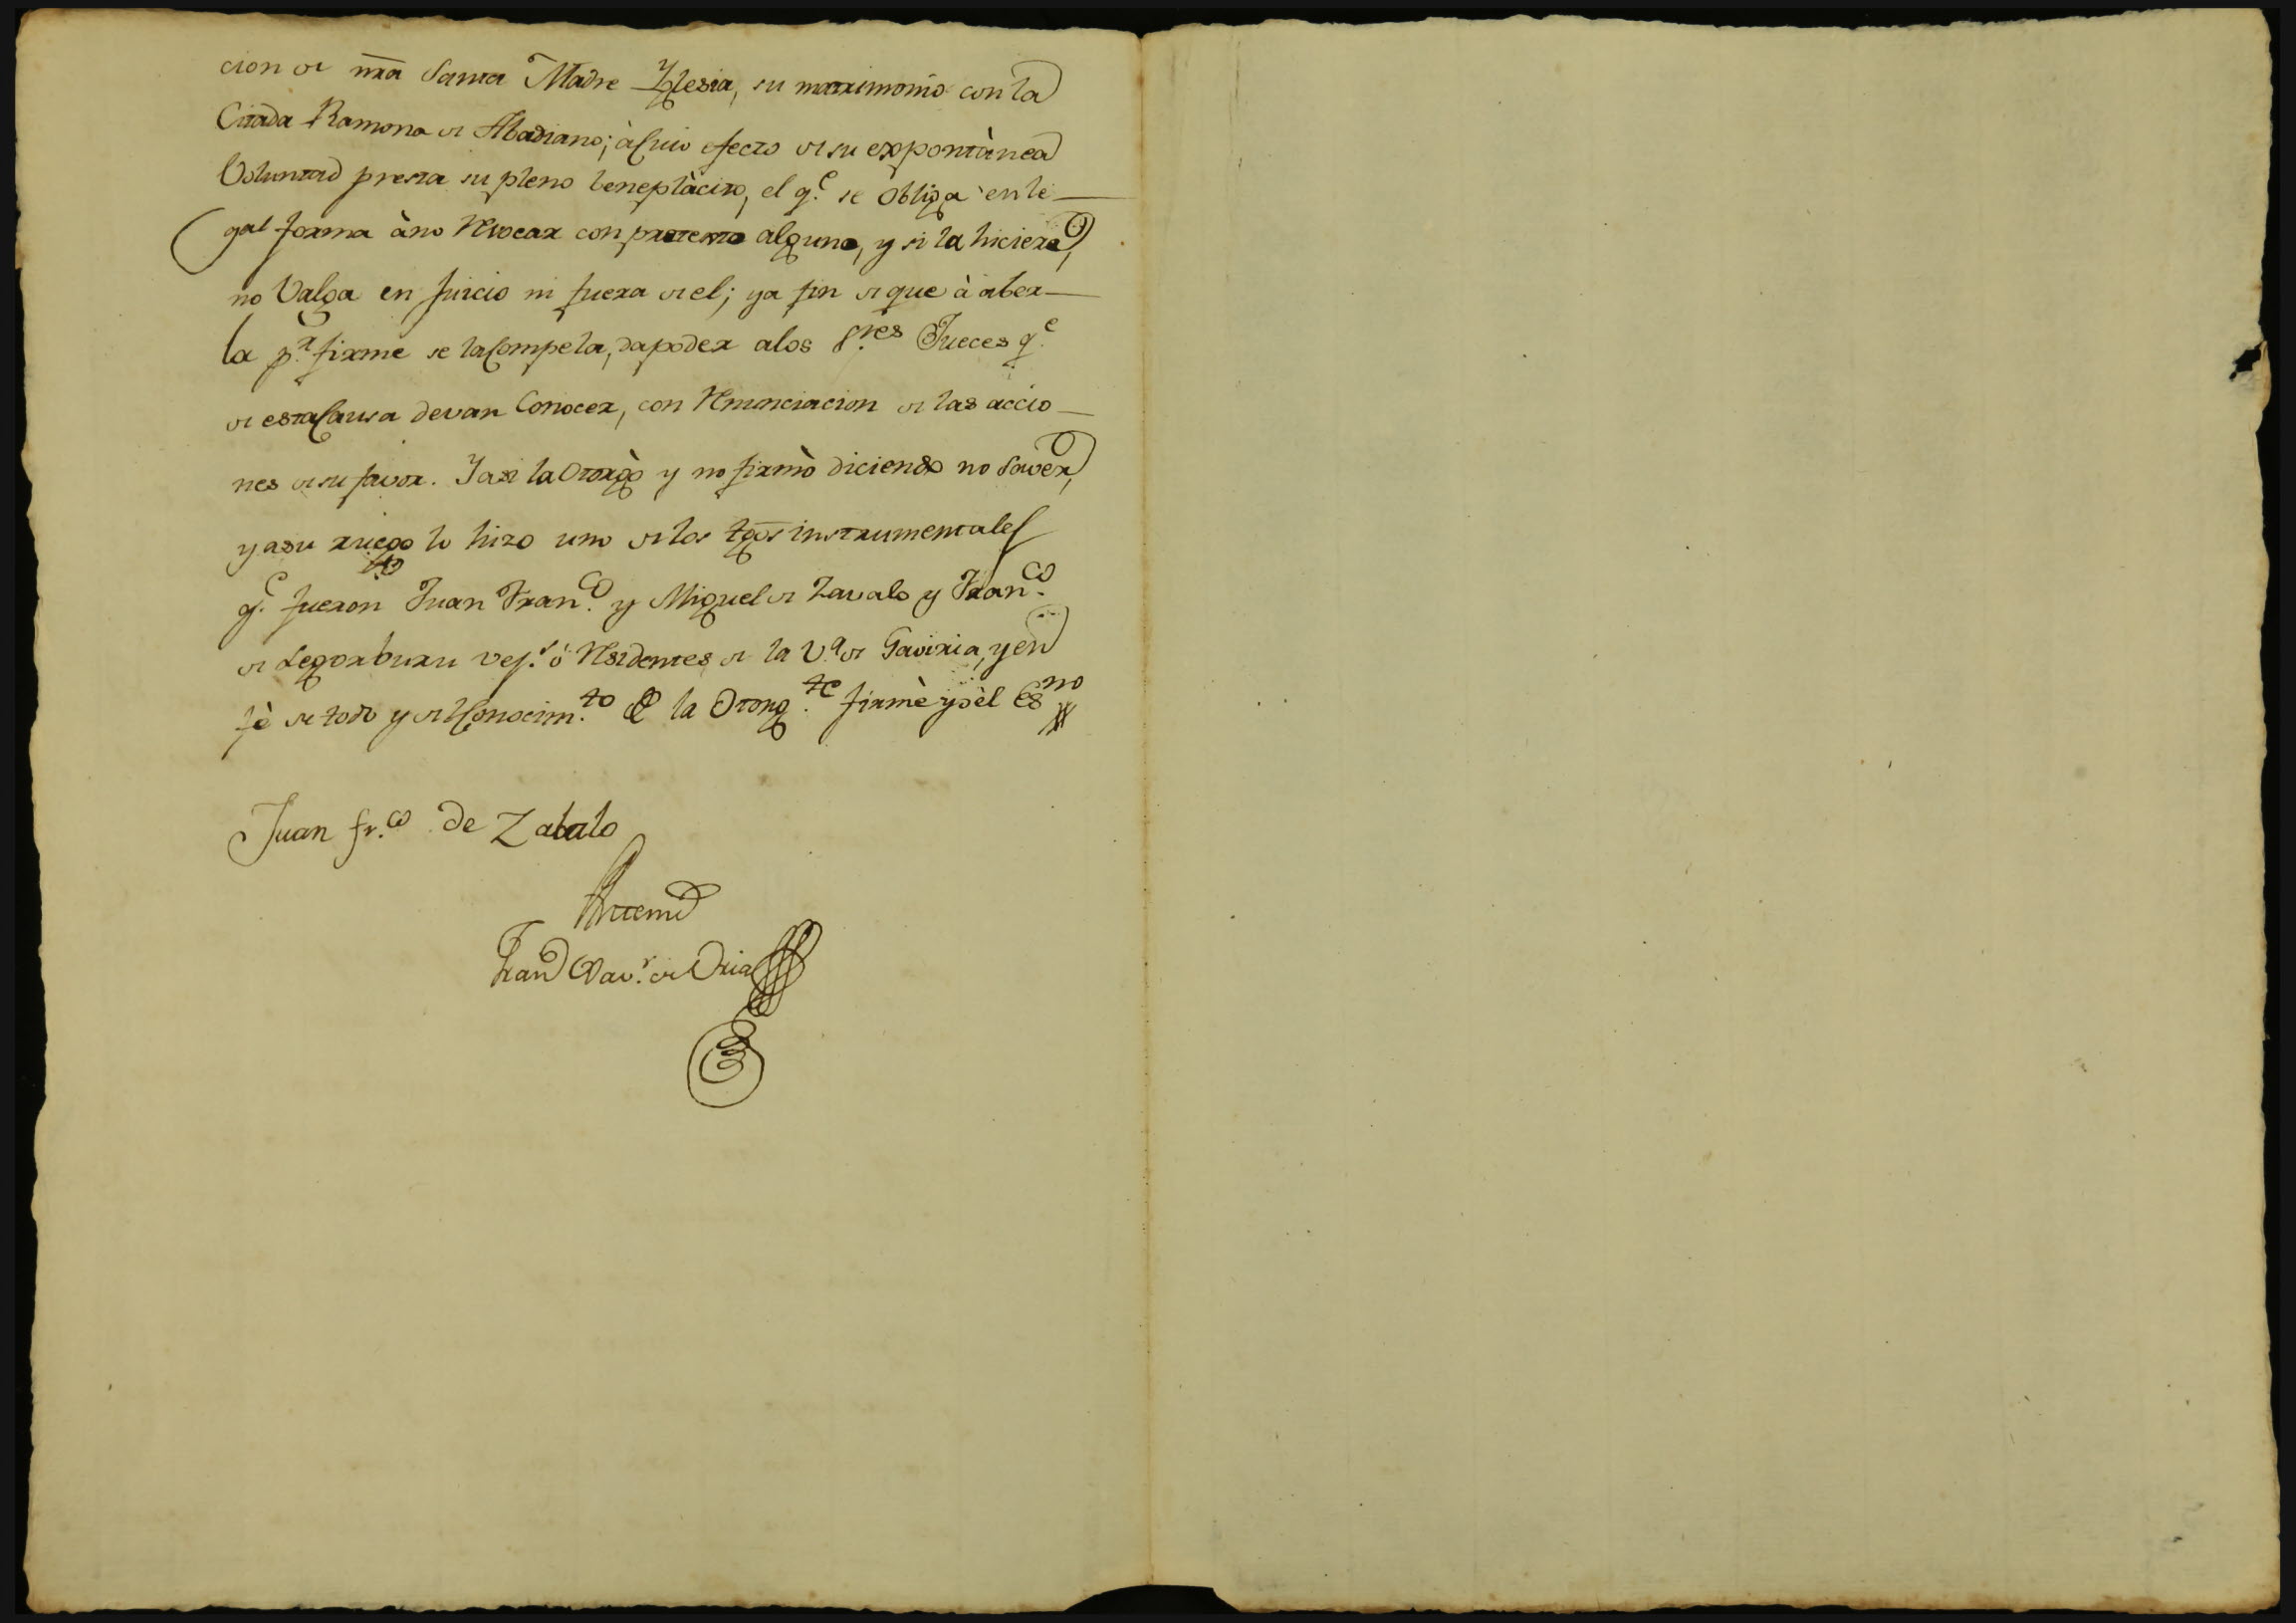 cion de nrã Santa Madre Yglesia, su matrimonio con la
Citada Ramona de Abadiano; à Cuio efecto de su expontànea
Voluntad presta su pleno beneplàcito, el q.e se obliga en le-
gal forma àno Revocar con pretexto alguno, y si la hiciere,
no Valga en Juicio ni fuera de el; ya fin de que à aber-
la p.r firme se la Compela, da poder alos S.res Jueces q.e
de esta Causa devan Conocer, con Renunciacion de las accio-
nes de su favor. Y asi la Otorgò y no firmò diciendo no Saver,
y asu ruego lo hizo uno de los tgõs instrumentales
q.e fueron Juan Fran.co y Miguel de Zavalo y Fran.co
de Legorburu vez.s ò Residentes de la V.a de Gaviria, y en
fè de todo y del Conocim.to de la Otorg.te firmè yo èl Es.no
Juan fr.co de Zabalo
Antemi
Fran.co Xav.r de Oria